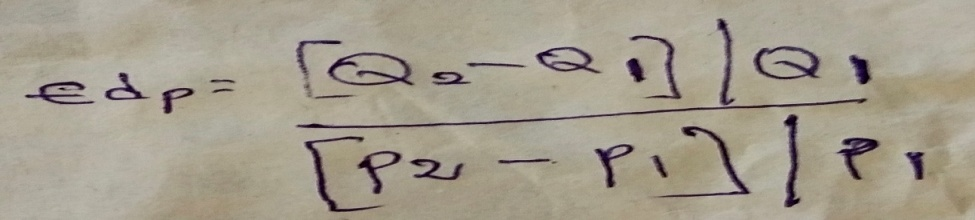 edp = [Q2 - Q1] / Q1
[P2 - P1] / P1